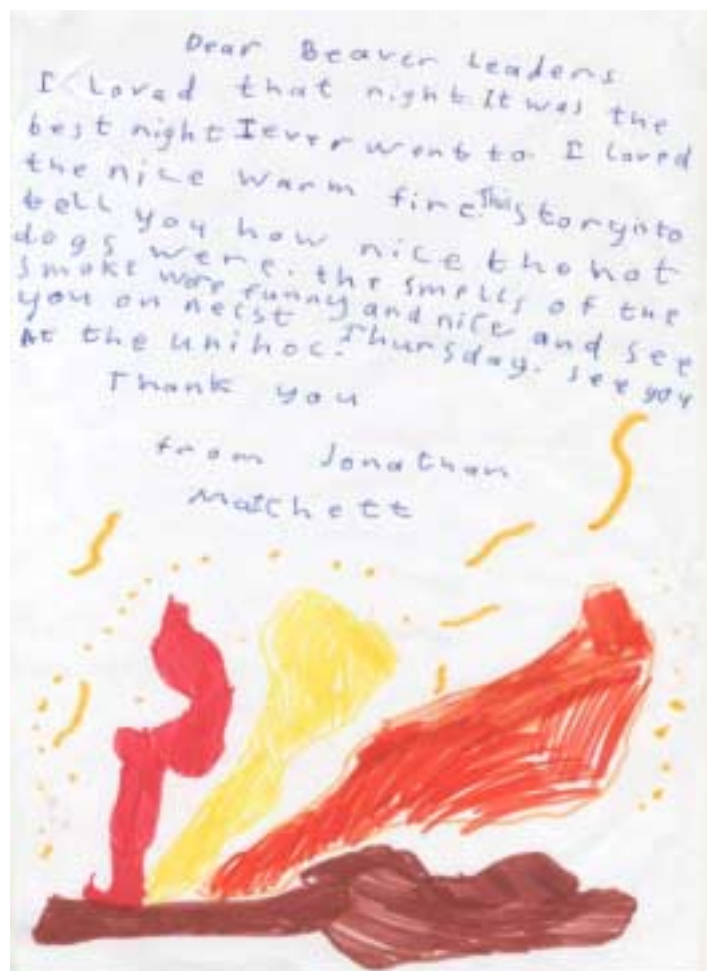 Dear Beaver Leaders
I Loved that night. It was the
best night I ever went to I Loved
the nice warm fire. This story is to
tell you how nice the hot
dogs were. the smells of the
smoke were funny and nice and see
you on necst Thursday. see you
At the unihoc.
Thank you
from Jonathan
Matchett